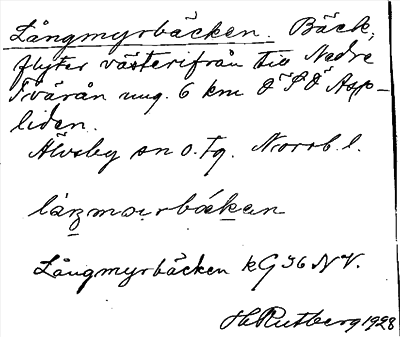 Långmyrbäcken. Bäck,
flyter västerifrån till Nedre
Tvärån ung. 6 km O S O Asp-
liden.
Älvsby sn o. tg. Norrb. l.
Långmyrbäcken kG 36 NV.
H Rutberg 1928